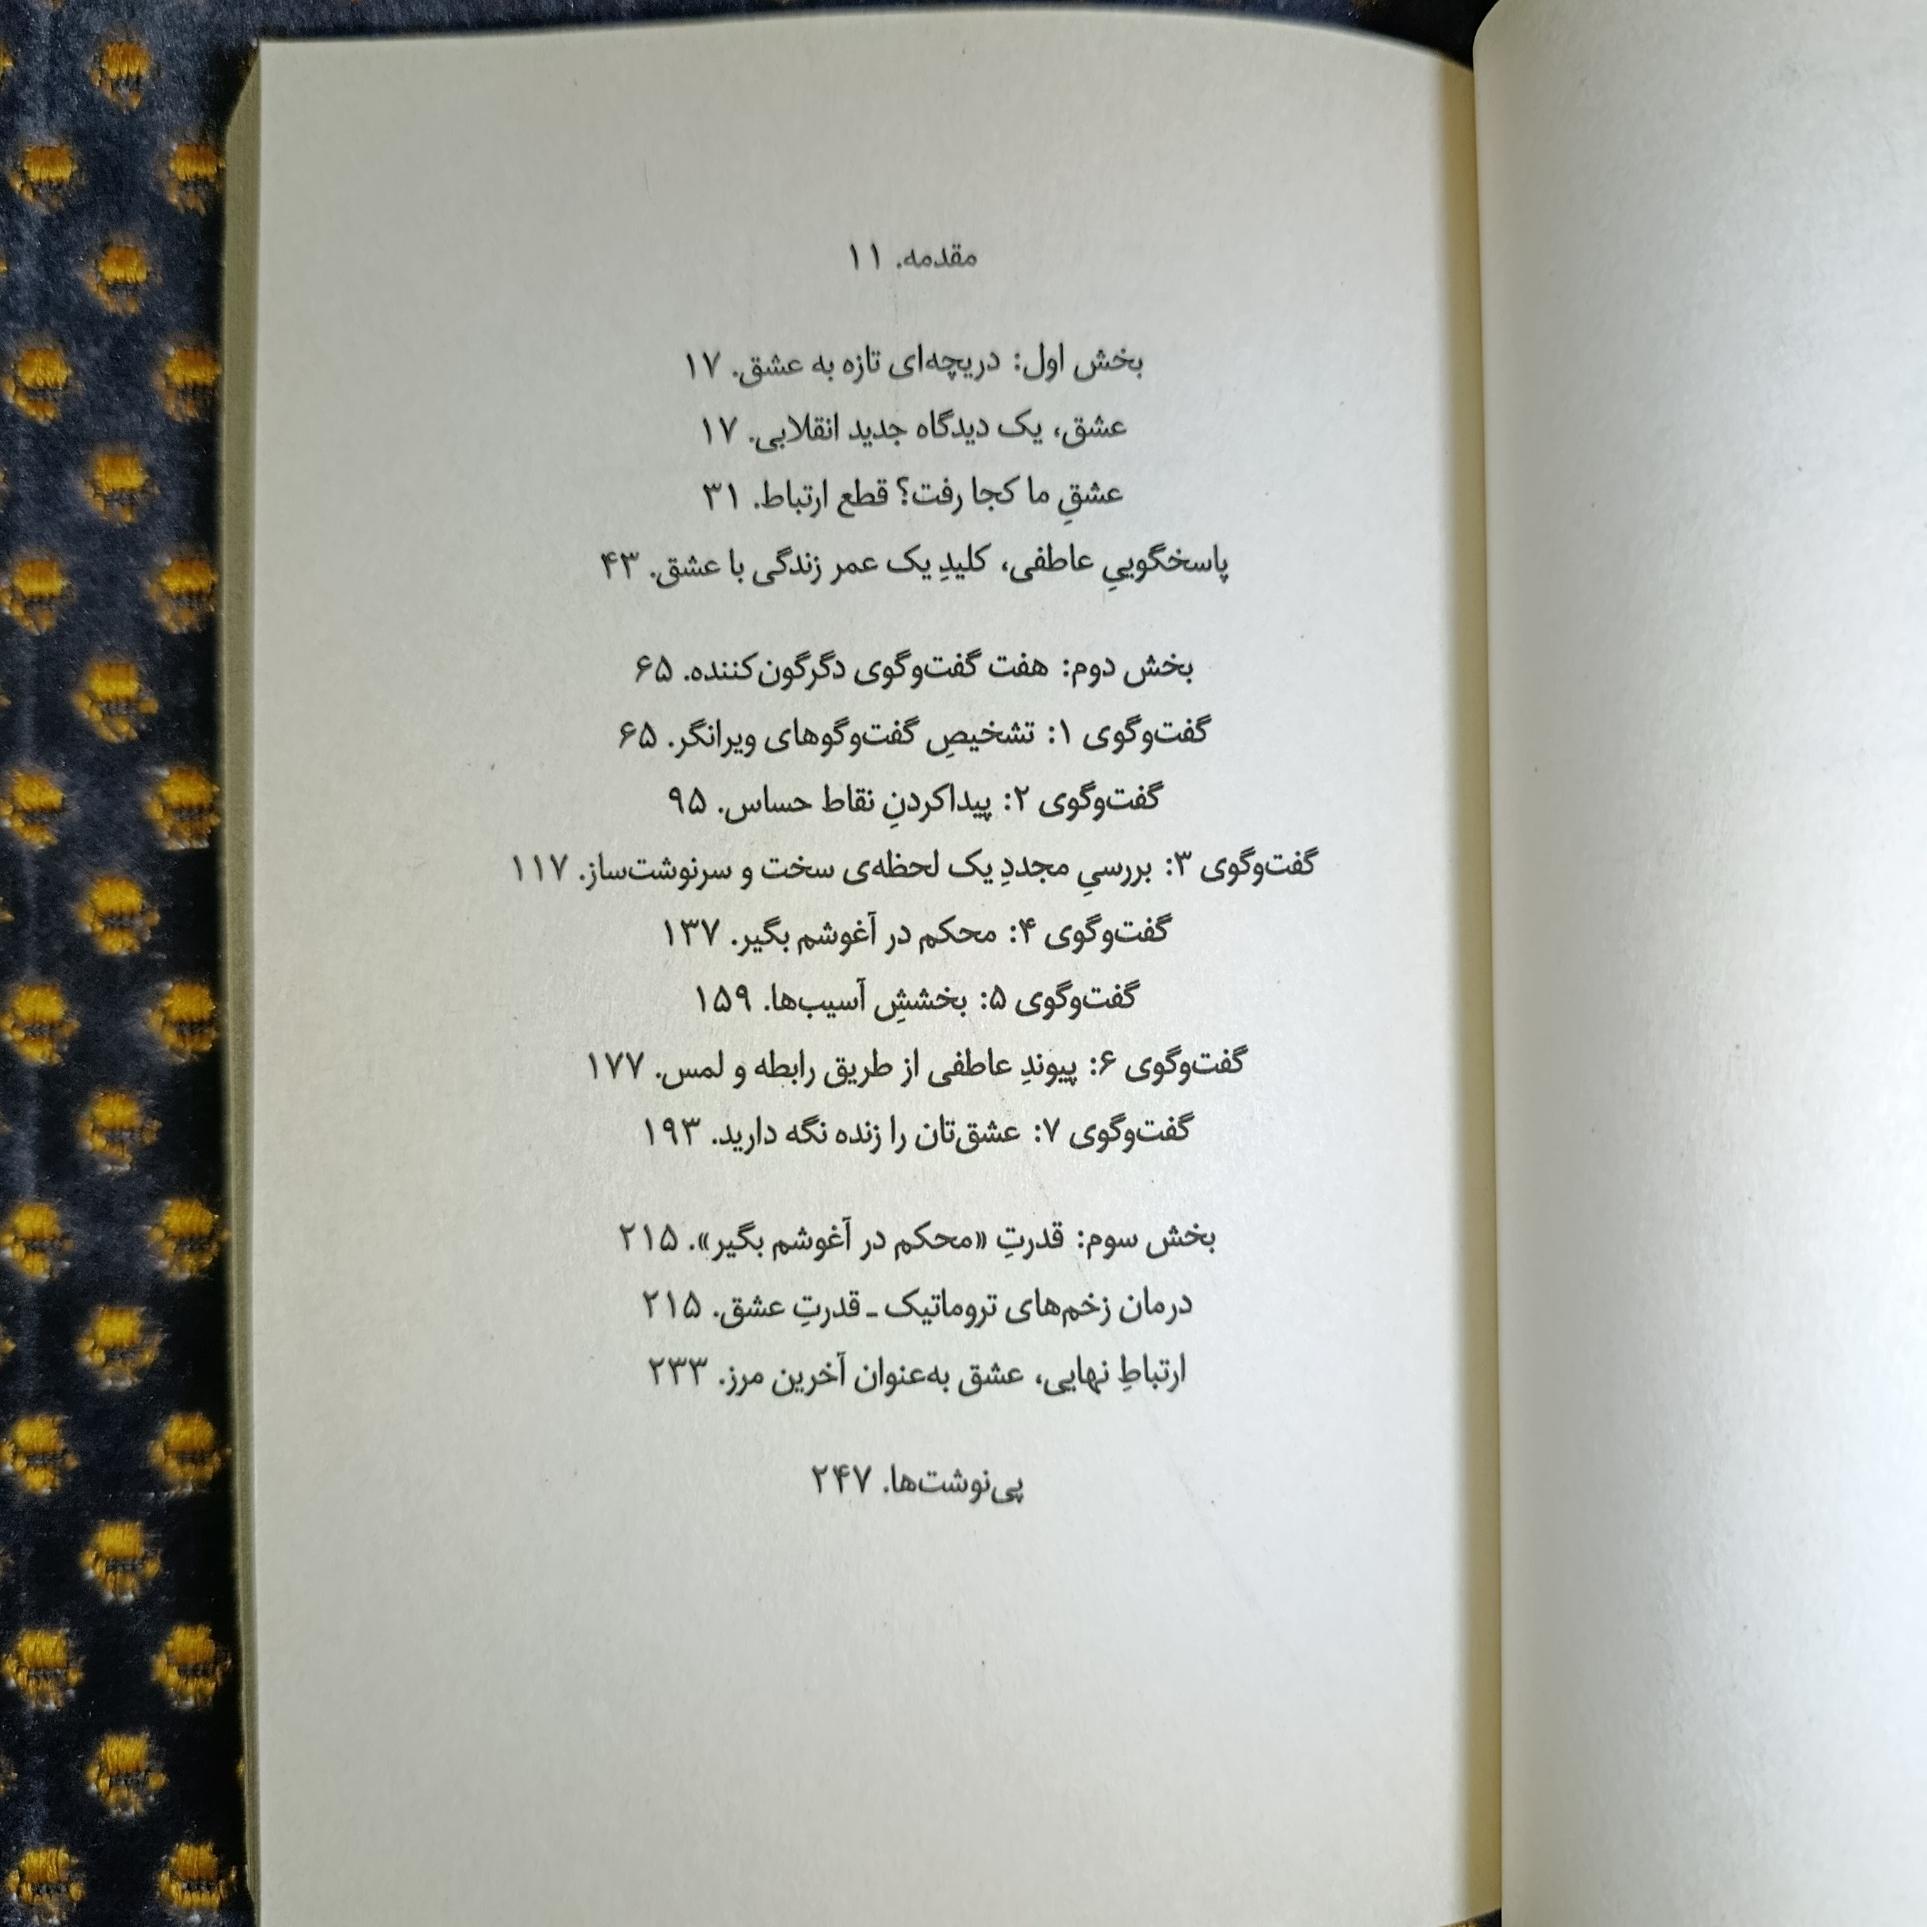 مقدمه. ۱۱
بخش اول: دریچه‌ای تازه به عشق. ۱۷
عشق، یک دیدگاه جدید انقلابی. ۱۷
عشقِ ما کجا رفت؟ قطع ارتباط. ۳۱
پاسخگوییِ عاطفی، کلیدِ یک عمر زندگی با عشق. ۴۳
بخش دوم: هفت گفت‌وگوی دگرگون‌کننده. ۶۵
گفت‌وگوی ۱: تشخیصِ گفت‌وگوهای ویرانگر. ۶۵
گفت‌وگوی ۲: پیداکردنِ نقاط حساس. ۹۵
گفت‌وگوی ۳: بررسیِ مجددِ یک لحظه‌ی سخت و سرنوشت‌ساز. ۱۱۷
گفت‌وگوی ۴: محکم در آغوشم بگیر. ۱۳۷
گفت‌وگوی ۵: بخششِ آسیب‌ها. ۱۵۹
گفت‌وگوی ۶: پیوندِ عاطفی از طریق رابطه و لمس. ۱۷۷
گفت‌وگوی ۷: عشق‌تان را زنده نگه دارید. ۱۹۳
بخش سوم: قدرتِ «محکم در آغوشم بگیر». ۲۱۵
درمان زخم‌های تروماتیک ـ قدرتِ عشق. ۲۱۵
ارتباطِ نهایی، عشق به‌عنوان آخرین مرز. ۲۳۳
پی‌نوشت‌ها. ۲۴۷